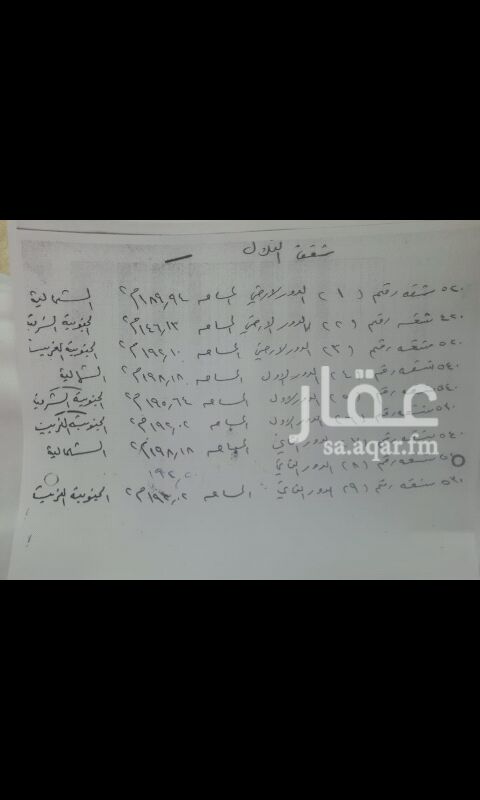 شقق التلال
٥٢٠ شقه رقم (١) الدور الارضي المساحه ١٨٩,٩٤م٢ الشمالية
٤٢٠ شقه رقم (٢) الدور الارضي المساحه ١٤٦,١٣م٢ الجنوبية الشرقية
٥٢٠ شقه رقم (٣) الدور الارضي المساحه ١٩٢,١٠م٢ الجنوبية الغربية
٥٤٠ شقه رقم (٤) الدور الاول المساحه ١٩٨,١٨م٢ الشمالية
٥٤٠ شقه رقم (٥) الدور الاول المساحه ١٩٥,٦٤م٢ الجنوبية الشرقية
٥٤٠ الدور الاول المساحه ١٩٢,٠٢م٢ الجنوبية الغربية
٥٤٠ شقه الدور المساحه ١٩٨,١٨م٢ الشمالية
شقه رقم (٨) الدور الثاني ١٩٢,
٥٢٠ شقه رقم (٩) الدور الثاني المساحه ١٩٢,٠٢م٢ الجنوبية الغربية
عقار
sa.aqar.fm